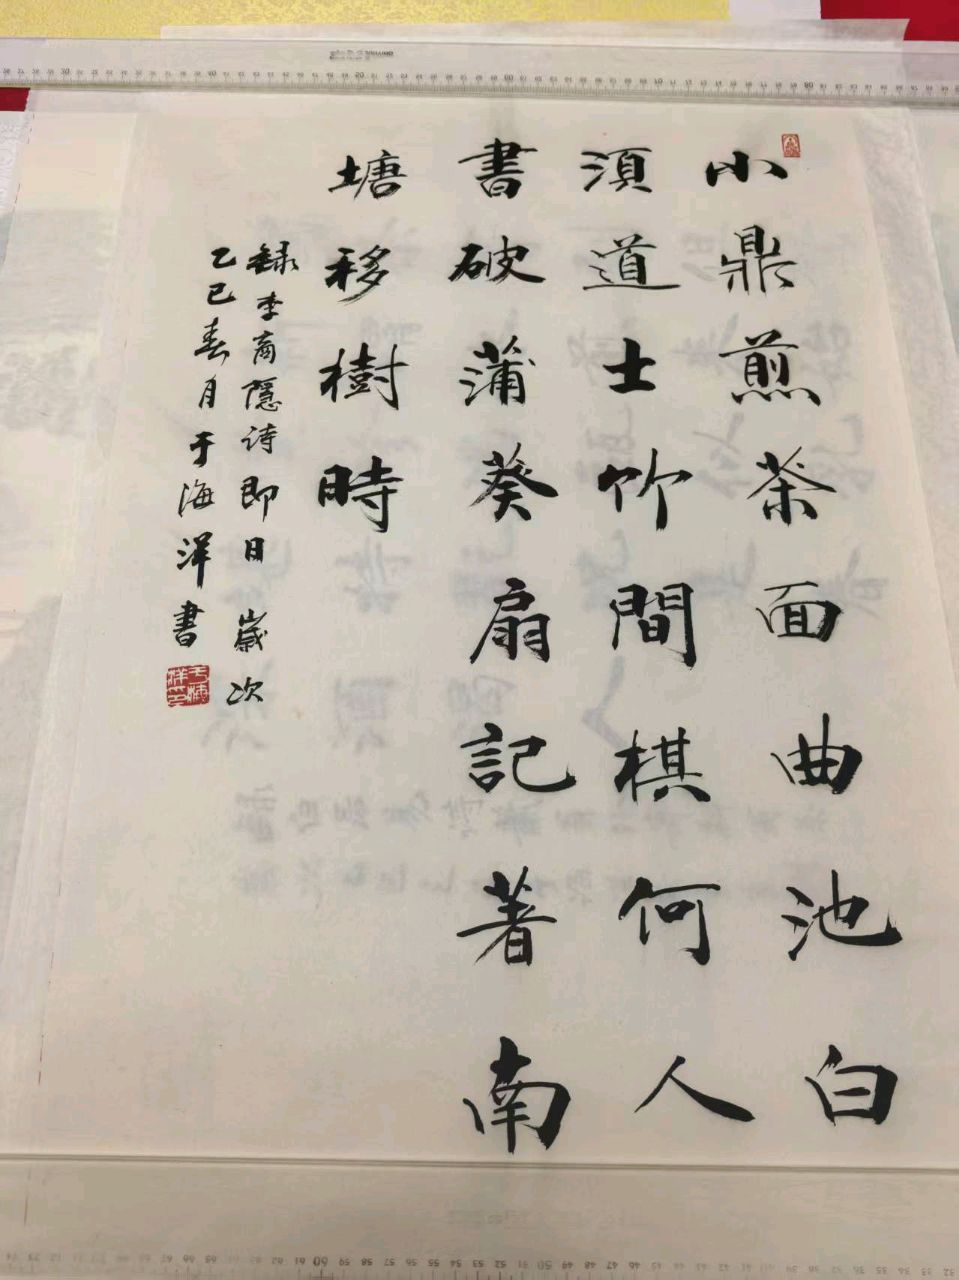 小鼎煎茶面曲池白
須道士竹間棋何人
書破蒲葵扇記著南
塘移樹時
録李商隱诗即日 歲次
乙巳春月于海洋書